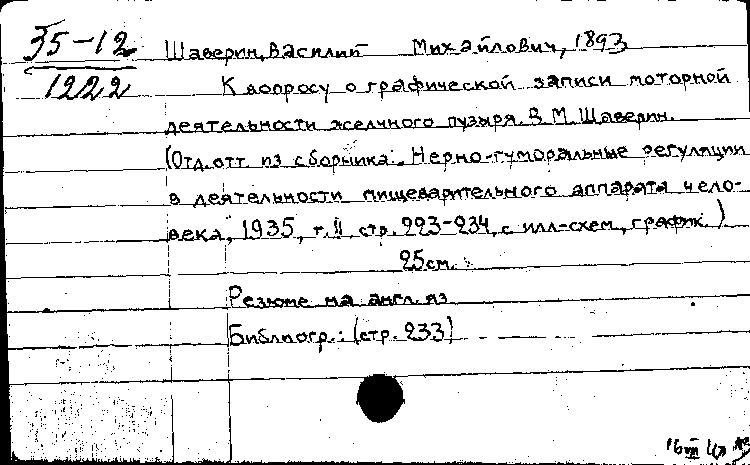 35-12
1222
Шаверин, Василий Михайлович, 1893
К вопросу о графической записи моторной
деятельности желчного пузыря. В. М. Шаверин.
(Отд. отт. из сборника: Нерно-гуморальные регуляции
в деятельности пищеварительного аппарата чело-
века, 1935, т. II, стр. 223-234, с илл-схем, график.)
25см.
Резюме на англ. яз
Библиогр.: (стр. 233)